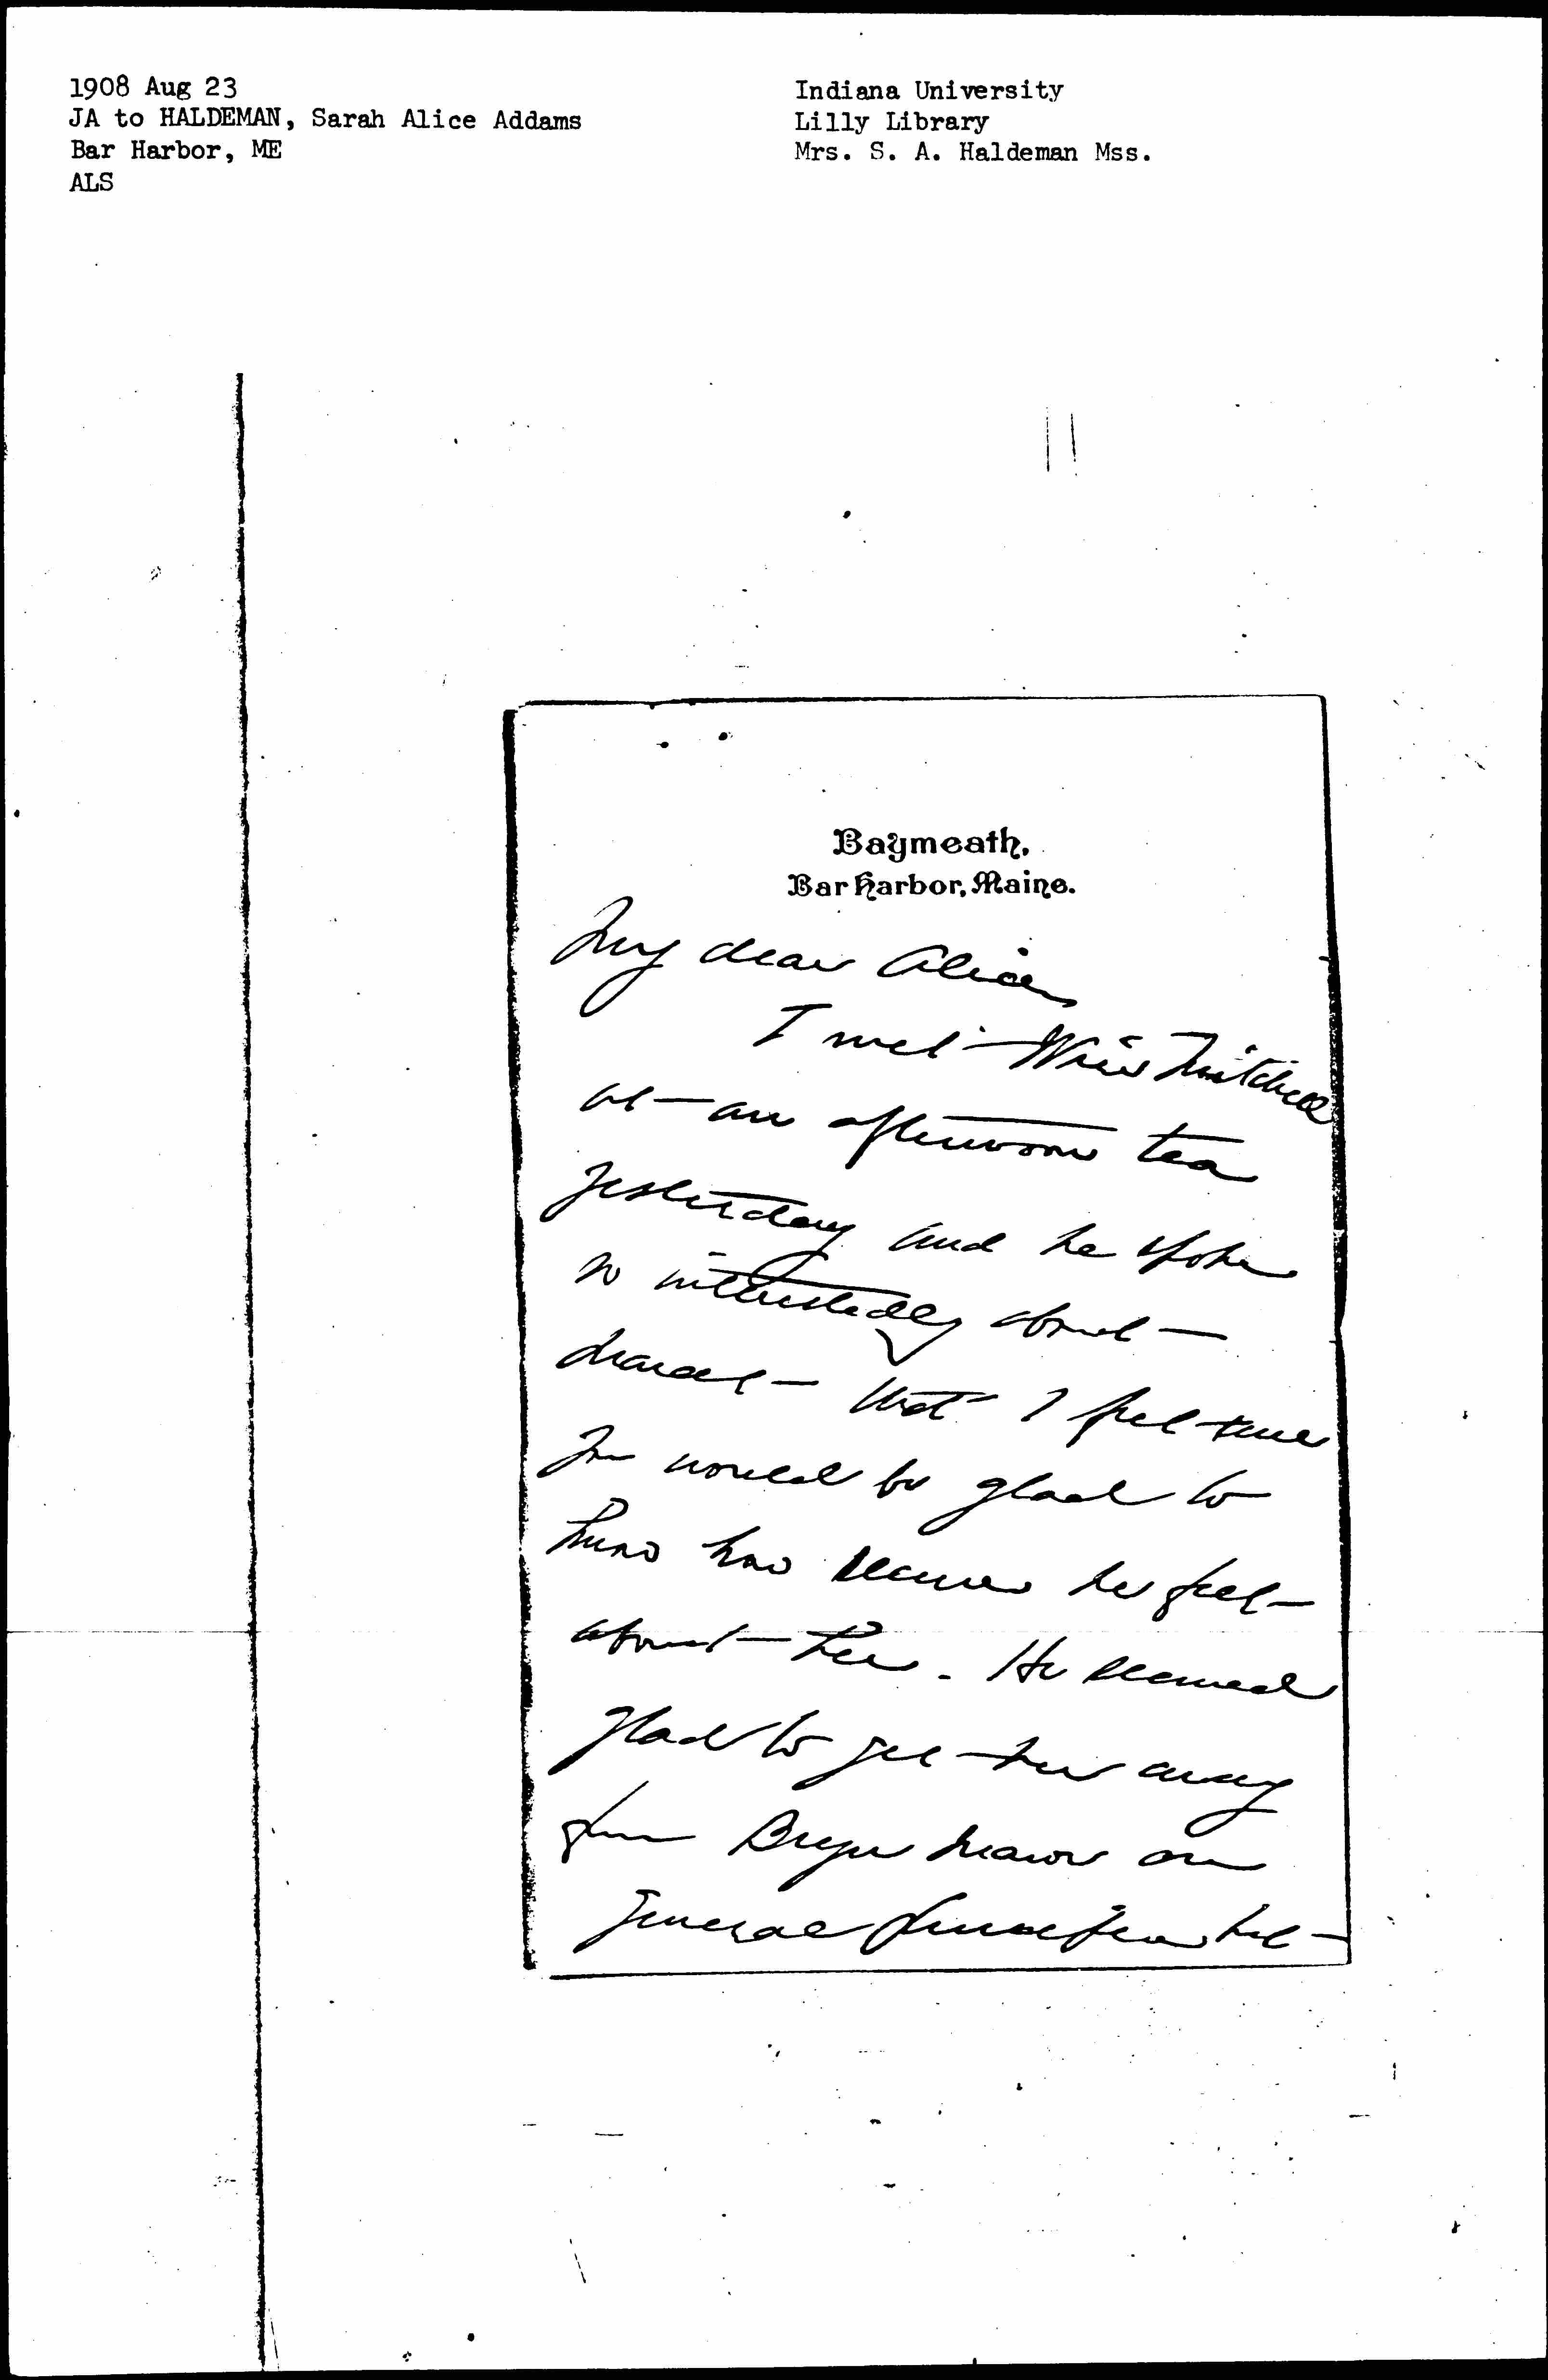 1908 Aug 23
JA to HALDEMAN, Sarah Alice Addams
Bar Harbor, ME
ALS
Indiana University
Lilly Library
Mrs. S. A. Haldeman Mss.
Baymeath,
Bar Harbor, Maine.
My dear Alice
I met Weir Mitchell
at an afternoon tea
yesterday and he spoke
so interestedly about
Marcet that I feel sure
you would be glad to
know how secure he feels
about her. He seemed
glad to get her away
from Bryn Mawr on
general principles but